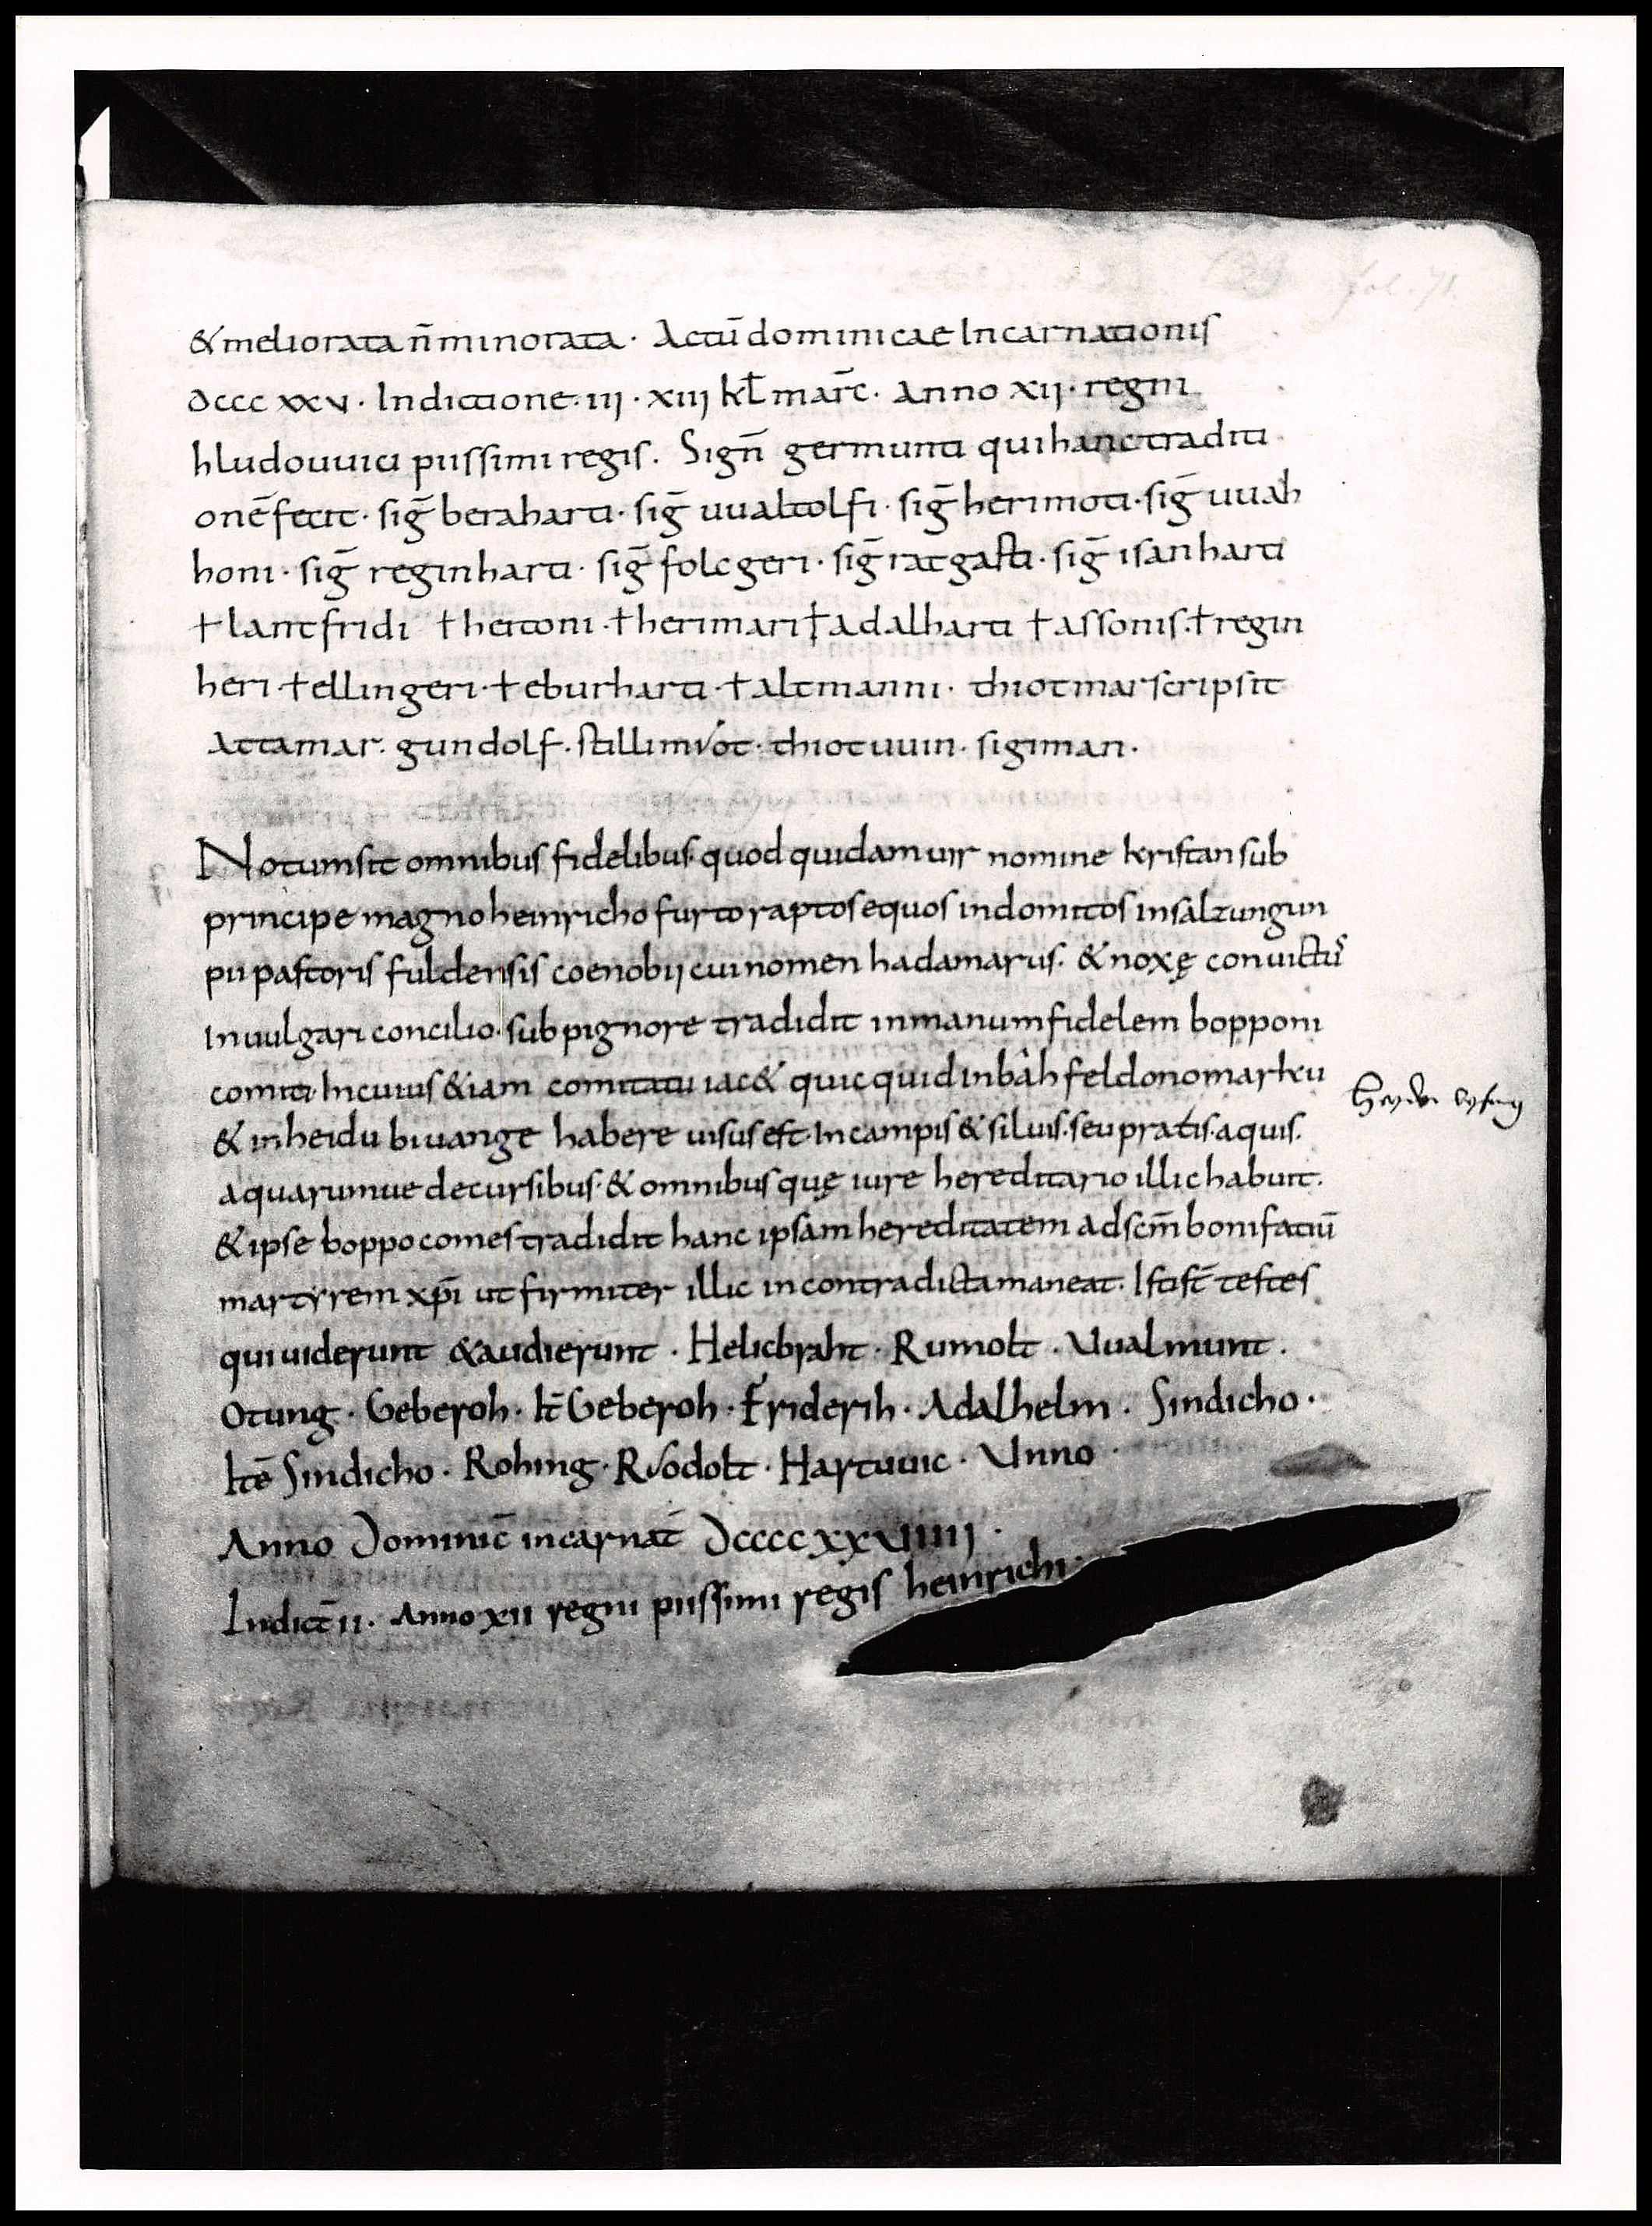 fol. 71.
& meliorata n̄ minorata · Actū dominicae Incarnationis
DCCC XXV · Indictione · III · XIIJ kƚ mar̄c · Anno XIJ · regni
hludouuici piissimi regis. Sign̄ germunti qui hanc traditi
onē fecit · siḡ beraharti · siḡ uualtolfi · siḡ herimoti · siḡ uuah
honi · siḡ reginharti · siḡ folcgeri · siḡ ratgasti · siḡ isanharti
† lantfridi † heitoni · † herimari † adalharti † assonis · † regin
heri · † ellingeri · † eburharti · † altmanni · thiotmar scripsit
Attamar · gundolf · stillimvot · thiotuuin · sigiman ·
Notum sit omnibus fidelibus · quod quidam uir nomine kristan sub
principe magno heinricho furto raptos equos indomitos in salzungun
pii pastoris fuldensis coenobij cui nomen hadamarus · & noxę conuictus
In uulgari concilio · sub pignore tradidit in manum fidelem bopponi
comiti · In cuius &iam comitatu iac& quicquid in bâhfeldonomarku
& in heidu biuange habere uisus est · In campis & siluis · seu pratis · aquis ·
aquarumue decursibus · & omnibus quę iure hereditario illic habuit ·
& ipse boppo comes tradidit hanc ipsam hereditatem ad scm̄ bonifatiū
martyrem xp̄i ut firmiter illic incontradicta maneat · Isti st̄ testes
qui uiderunt & audierunt · Helicbraht · Rumolt · Uualmunt ·
Otung · Geberoh · It̄ Geberoh · Friderih · Adalhelm · Sindicho ·
Itē Sindicho · Rohing · Rvodolt · Hartuuic · Unno ·
Anno Dominic̄ incarnat̄ DCCCCXXVIIIJ ·
Indict̄ II · Anno XII regni piissimi regis heinrichi ·